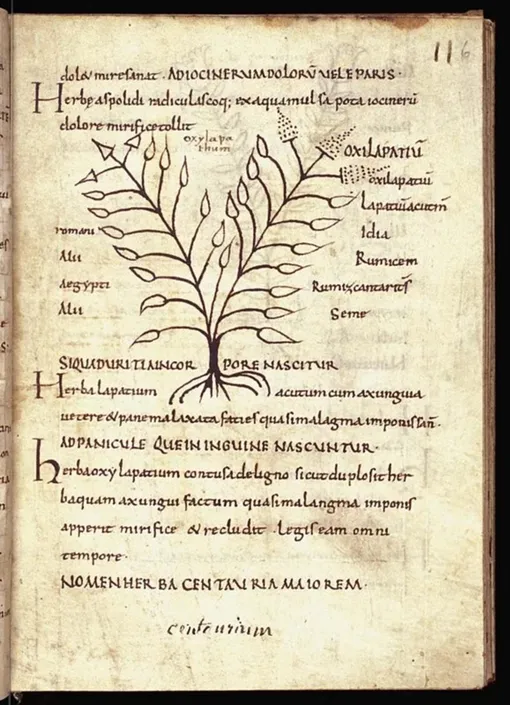 116
dolore mire sanat · AD IOCINERUM DOLORŪ VEL EPARIS ·
Herbę aspolidi radiculas coq; ex aqua mulsa pota iocinerū
dolore mirifice tollit
oxylapa
thum
OXILAPATIŪ
oxilapatiū
Lapatiū acutm̄
romani Idia
Alii Rumicem
Aegypti Rumix cantarits̄
Alii Seme
SIQUA DURITIA IN CORPORE NASCITUR
Herba lapatium acutum cum axunguia
vetere & pane malaxata facies quasi malagma imponis san̄ ·
AD PANICULE QUE IN INGUINE NASCUNTUR ·
herba oxylapatium contusa de ligno sicut duplosit her
baquam axungui factum quasi malangma imponis
apperit mirifice & recludit · legis eam omni
tempore ·
NOMEN HERBA CENTAURIA MAIOREM ·
centaurium